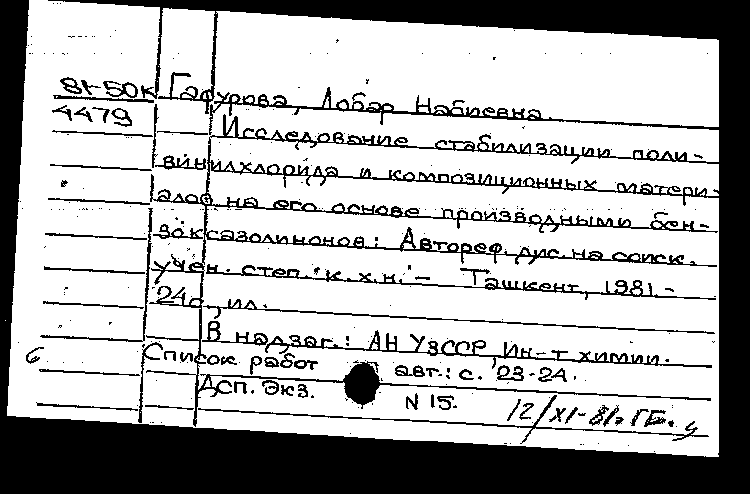 81-50к Гафурова, Лобар Набиевна.
4479 Исследование стабилизации поли-
винилхлорида и композиционных матери-
алов на его основе производными бен-
зоксазолинонов: Автореф. дис. на соиск.
учен. степ. к.х.н. – Ташкент, 1981.-
24с., ил.
В надзаг.: АН УзССР, Ин-т химии.
Список работ авт.: с. 23-24.
Дсп. Экз. N 15.
12/XI-81. ГБ.